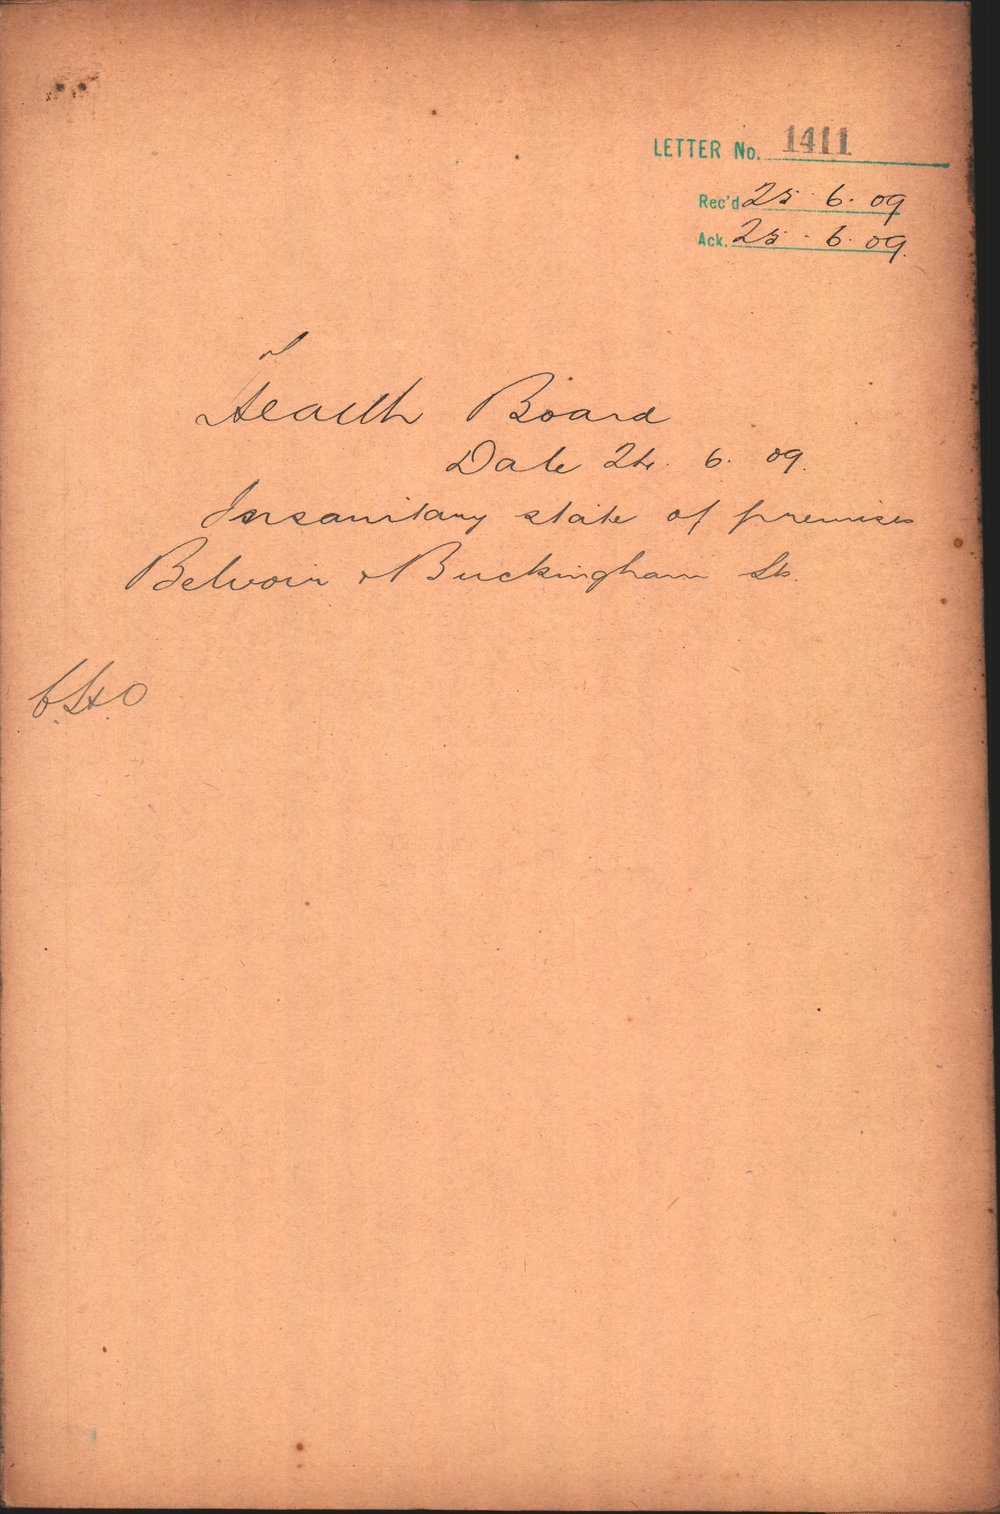 LETTER No. 1411
Rec'd 25. 6. 09
Ack. 25. 6. 09.
Health Board
Date 24. 6. 09.
Insanitary state of premises
Belvoir & Buckingham Sts.